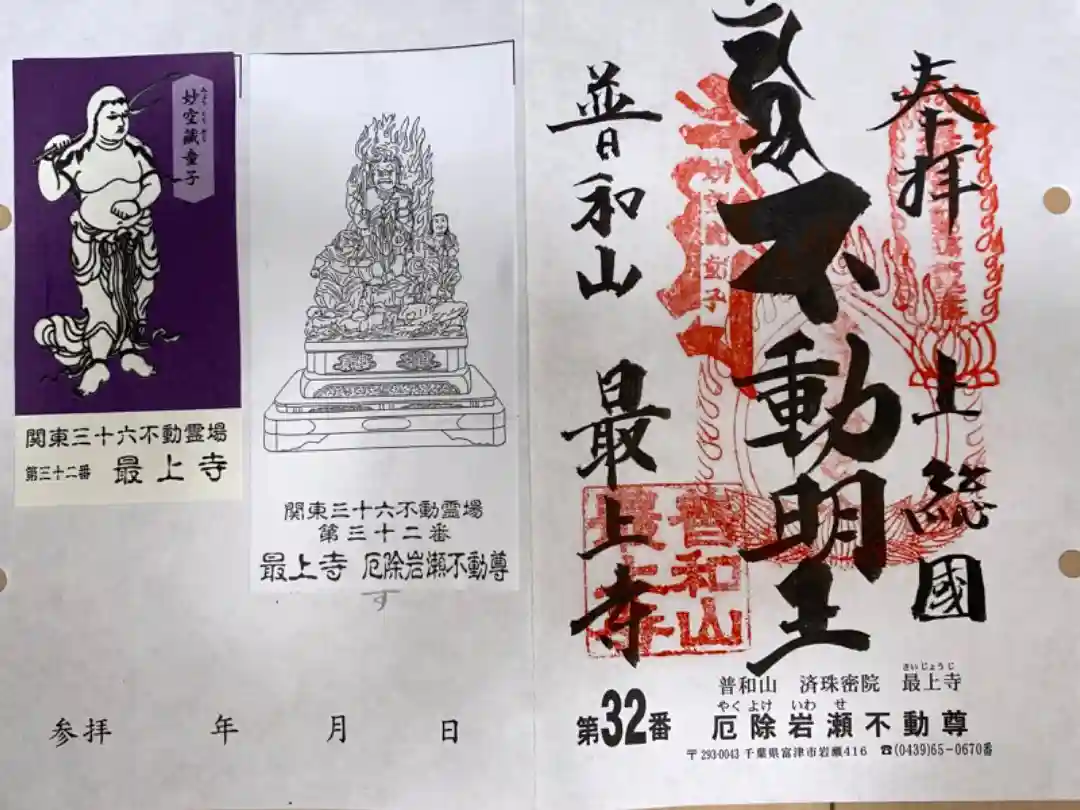 奉拝
上総國
不動明王
普和山
最上寺
普和山
最上寺
普和山 済珠密院 最上寺
さいじょうじ
第32番
やくよけ いわせ
厄除岩瀬不動尊
〒293-0043 千葉県富津市岩瀬416 ☎(0439)65-0670番
妙空蔵童子
関東三十六不動霊場
第三十二番 最上寺
関東三十六不動霊場
第三十二番
最上寺 厄除岩瀬不動尊
す
参拝 年 月 日